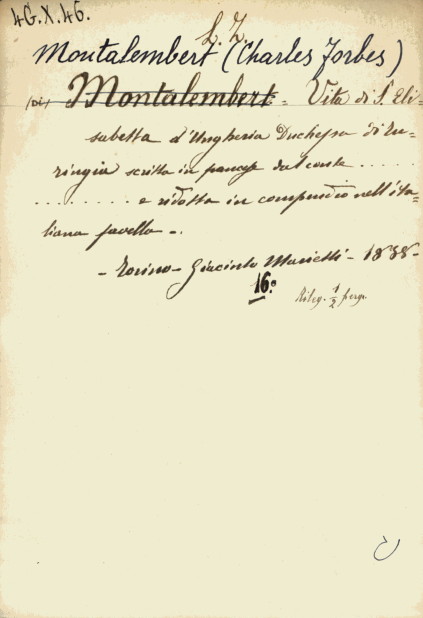 4G.X.46.
L. Z.
Montalembert (Charles Forbes)
(Di) Montalembert = Vita di S. Eli-
sabetta d'Ungheria Duchessa di Tu-
ringia scritta in francese dal conte .....
......... e ridotta in compendio nell'ita-
liana favella -.
- Torino - Giacinto Marietti - 1838 -
16°
Rileg. 1/2 perg.